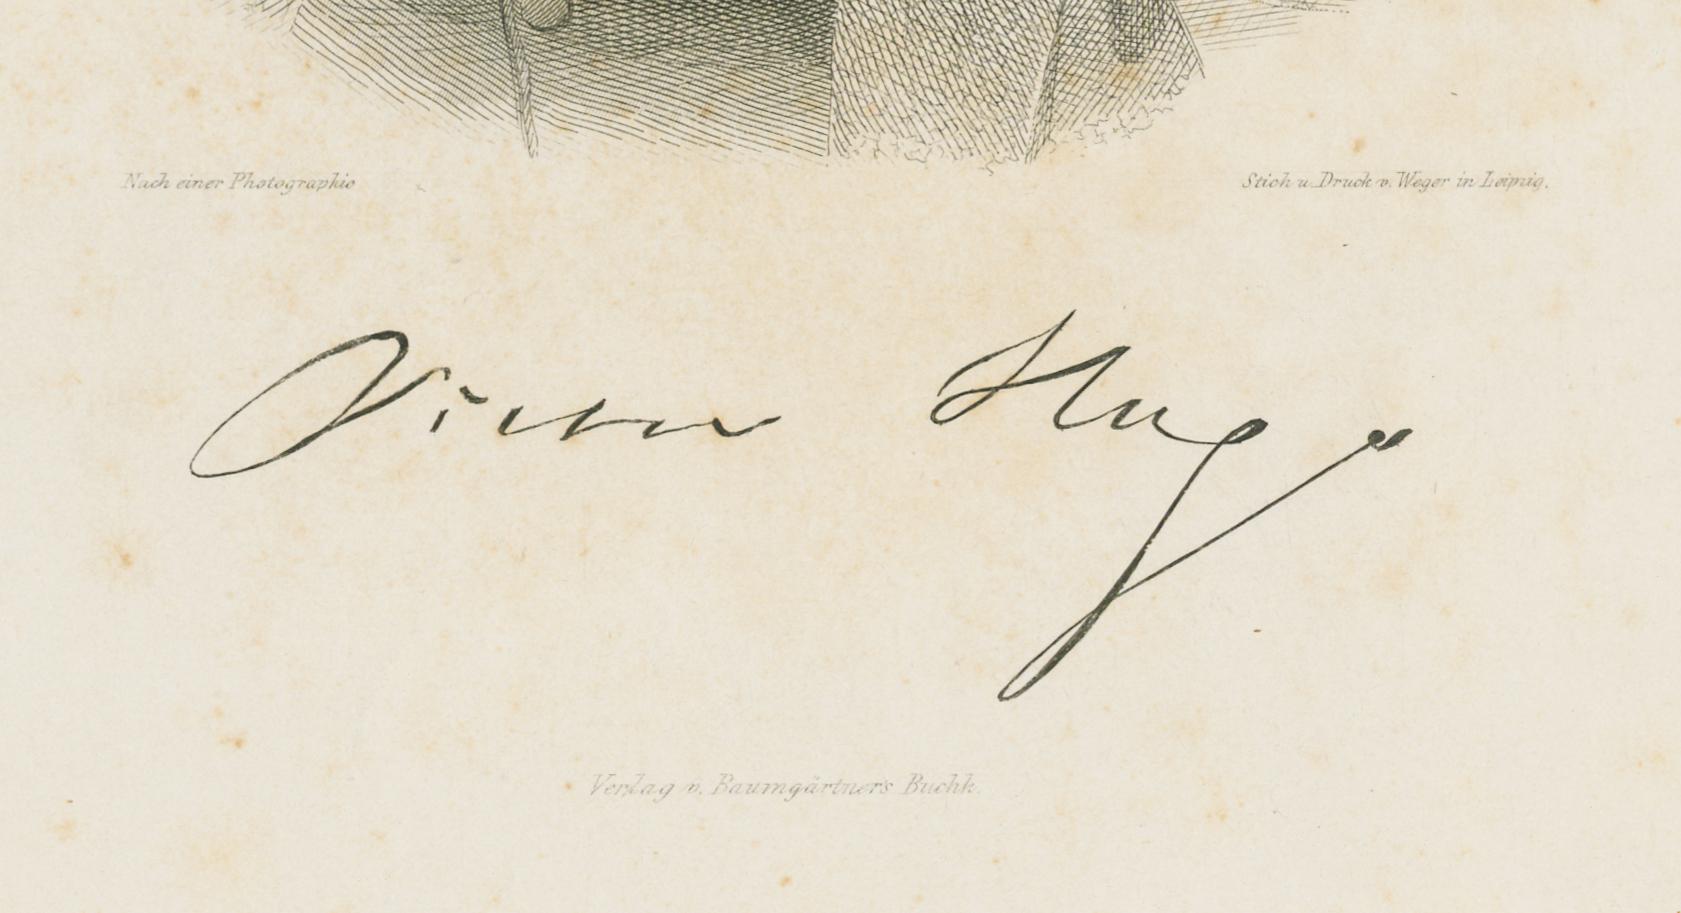 Nach einer Photographie
Stich u. Druck v. Weger in Leipzig.
Victor Hugo
Verlag v. Baumgärtner's Buchh.